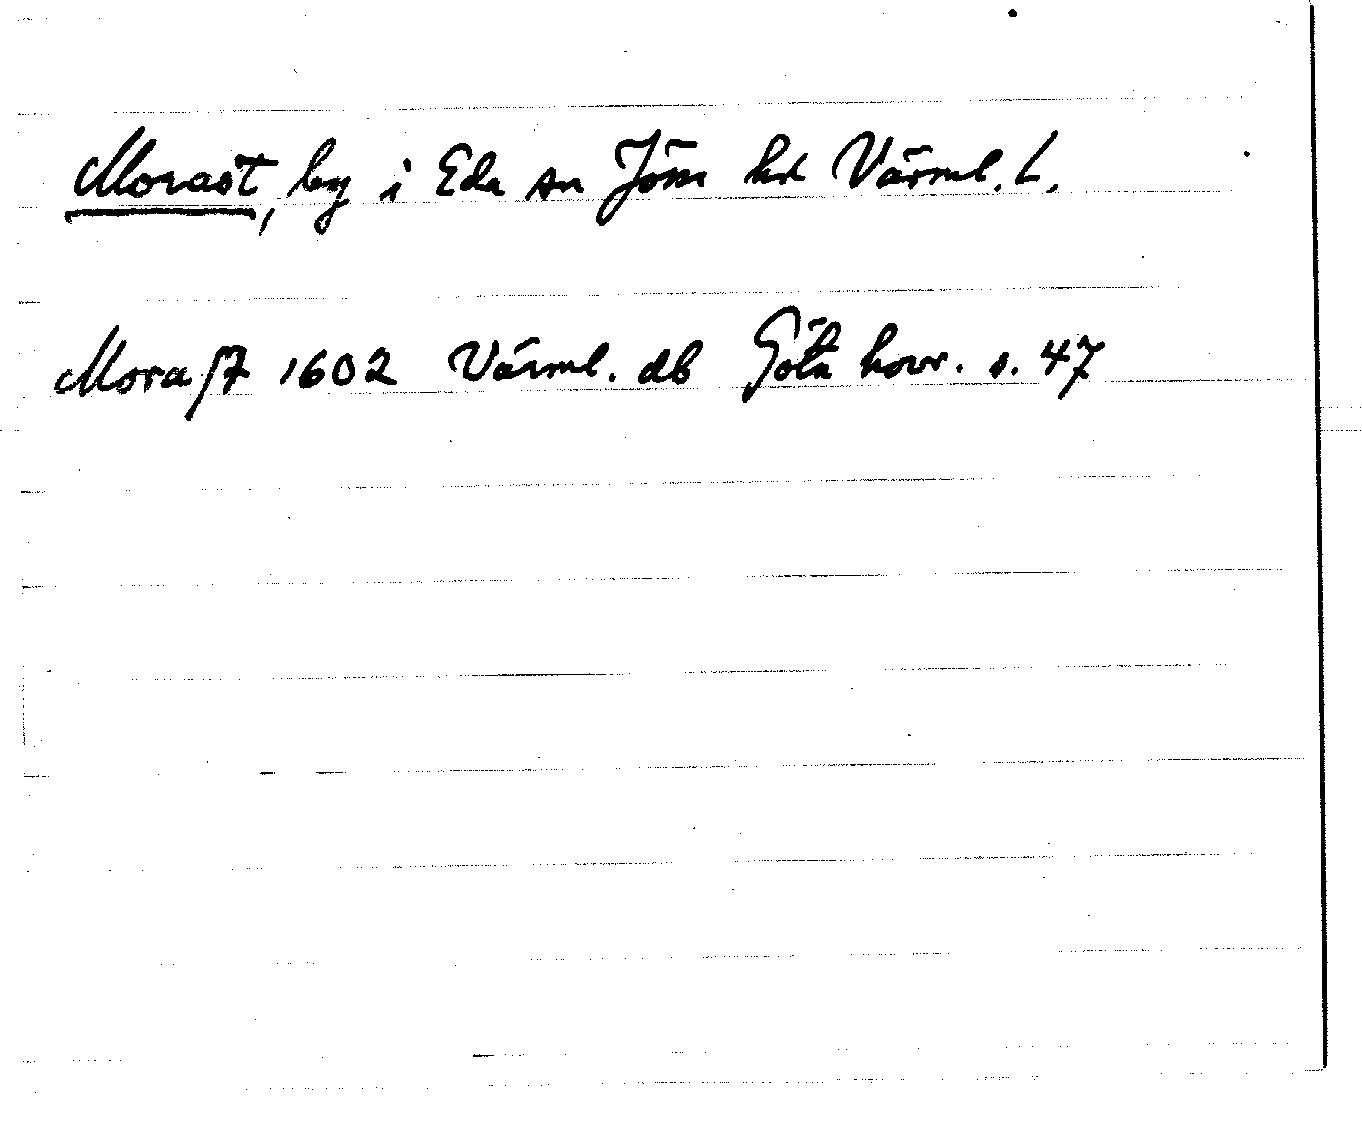 Morast, by i Eda sn Jöss hd Värml. L.
Moraſt 1602 Värml. db Göta hovr. s. 47